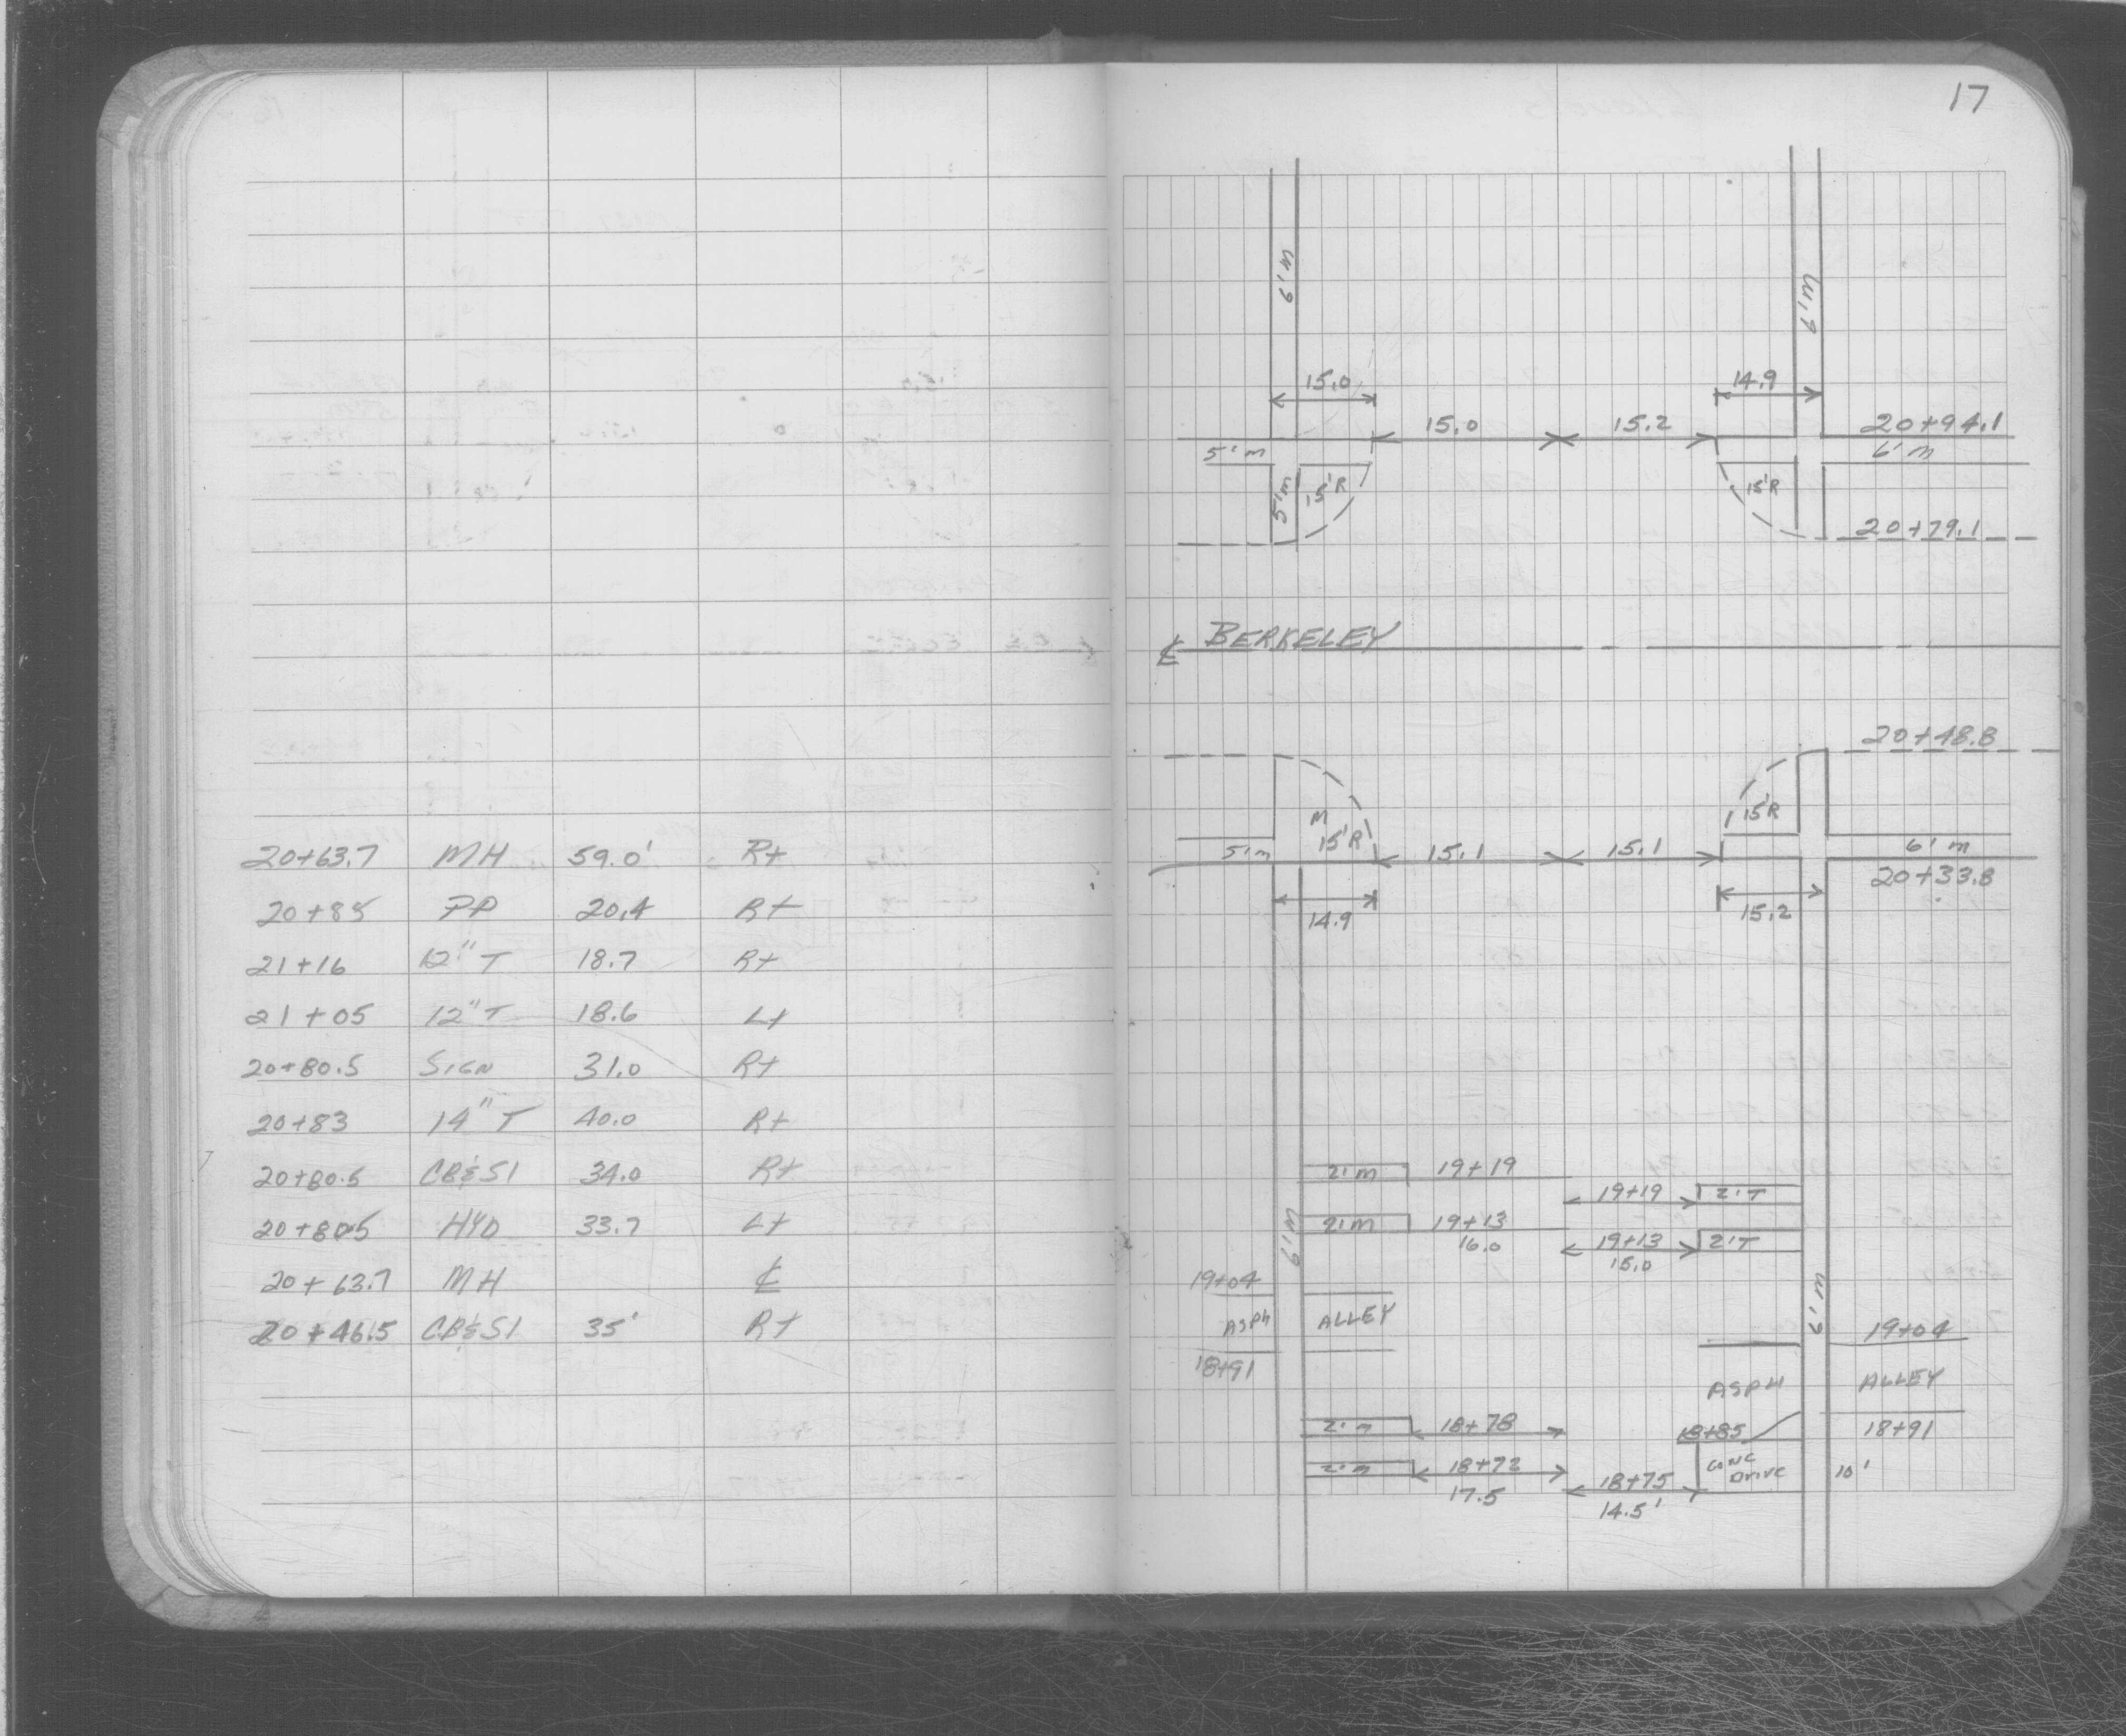 17
20+63.7 MH 59.0' Rt
20+85 PP 20.4 Rt
21+16 12" T 18.7 Rt
21+05 12" T 18.6 Lt
20+80.5 SIGN 31.0 Rt
20+83 14" T 40.0 Rt
20+80.5 CB&SI 34.0 Rt
20+80.5 HYD 33.7 Lt
20+63.7 MH ℄
20+46.5 CB&SI 35' Rt
6'M 6'M
15.0 14.9
15.0 15.2 20+94.1
5'M 6'M
5'M 15'R 15'R
20+79.1
℄ BERKELEY
20+48.8
M 15'R
15'R
5'M 15.1 15.1 6'M
20+33.8
14.9 15.2
2'M 19+19
19+19 2'T
2'M 19+13
16.0
19+13 2'T
15.0
6'M 6'M
19+04
ASPH ALLEY
19+04
18+91
ASPH ALLEY
2'M 18+78
18+85 18+91
2'M 18+72
17.5
CONC DRIVE 10'
18+75
14.5'